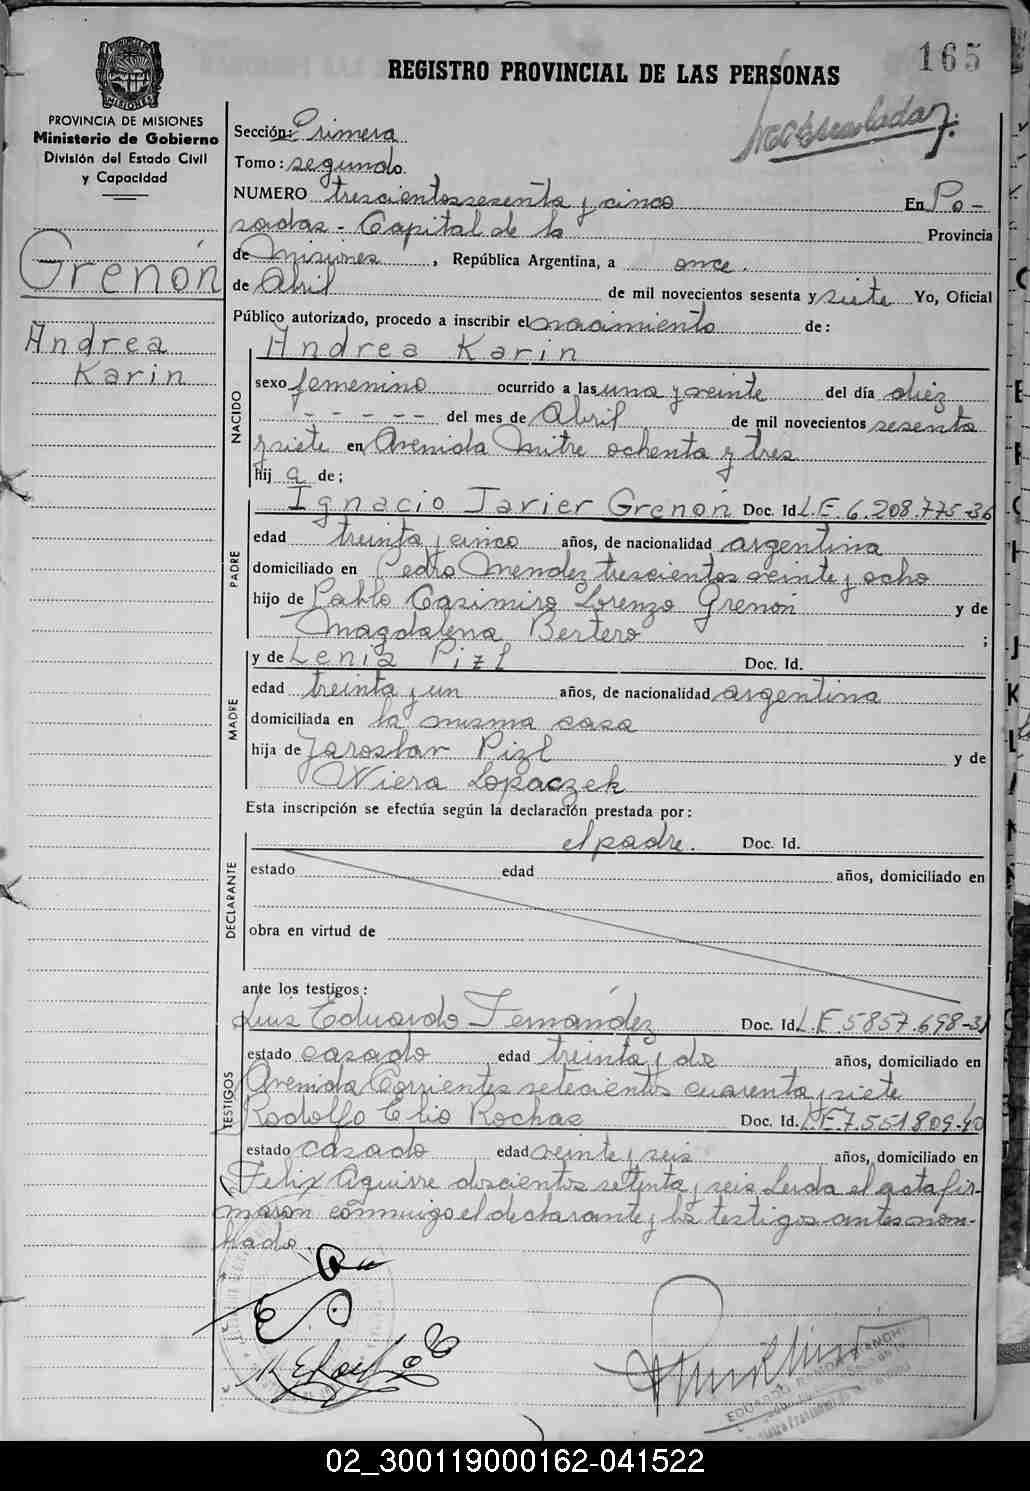 165
REGISTRO PROVINCIAL DE LAS PERSONAS
PROVINCIA DE MISIONES
Ministerio de Gobierno
División del Estado Civil
y Capacidad
MISIONES
Grenón
Andrea
Karin
Sección: Primera
Tomo: segundo.
NUMERO trescientos sesenta y cinco En Po-
sadas - Capital de la Provincia
de Misiones, República Argentina, a once.
de Abril de mil novecientos sesenta y siete Yo, Oficial
Público autorizado, procedo a inscribir el nacimiento de:
NACIDO
Andrea Karin
sexo femenino ocurrido a las una y veinte del día diez
- - - - - del mes de Abril de mil novecientos sesenta
y siete en Avenida Mitre ochenta y tres
hij a de:
PADRE
Ignacio Javier Grenón Doc. Id. L.E. 6.208.775-36
edad treinta y cinco años, de nacionalidad argentina
domiciliado en Pedro Mendez trescientos veinte y ocho
hijo de Pablo Casimiro Lorenzo Grenón y de
Magdalena Bertero ;
MADRE
y de Lenia Pizl Doc. Id.
edad treinta y un años, de nacionalidad argentina
domiciliada en la misma casa
hija de Jaroslav Pizl y de
Wiera Lopaczek
Esta inscripción se efectúa según la declaración prestada por:
DECLARANTE
el padre. Doc. Id.
estado edad años, domiciliado en
obra en virtud de
ante los testigos:
TESTIGOS
Luis Eduardo Fernández Doc. Id. L.E 5857.698-31
estado casado edad treinta y dos años, domiciliado en
Avenida Corrientes setecientos cuarenta y siete
Rodolfo Elio Rochas Doc. Id. L.E 7.551.809-40
estado casado edad veinte y seis años, domiciliado en
Felix Aguirre doscientos setenta y seis Leida el acta fir-
maron conmigo el declarante y los testigos antes nom-
brado.
02_300119000162-041522